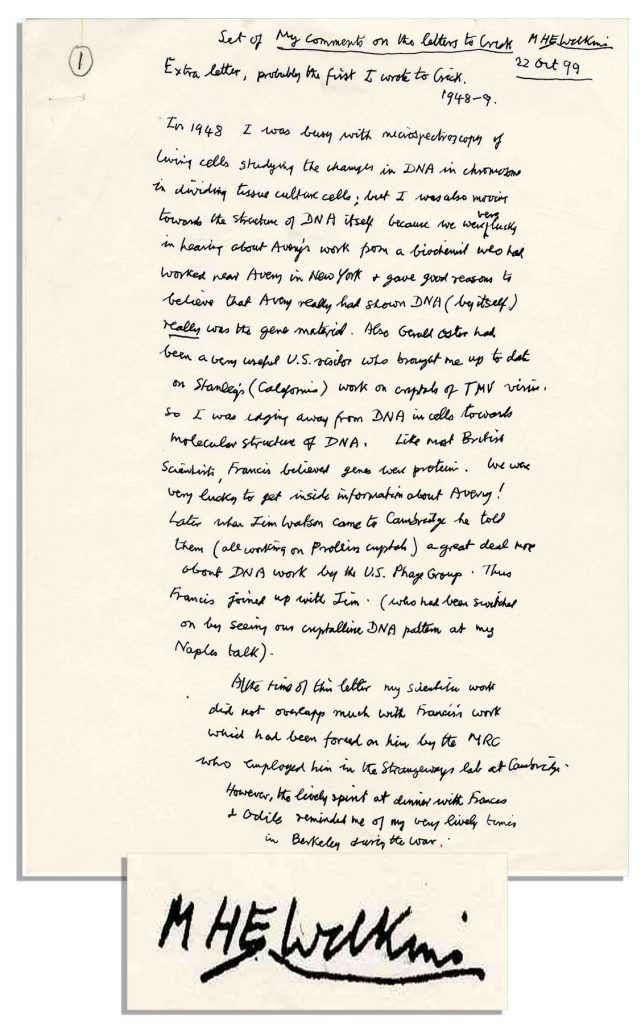 1
Set of My Comments on the letters to Crick MHEWilkins
22 Oct 99
Extra letter, probably the first I wrote to Crick.
1948-9.
In 1948 I was busy with microspectroscopy of
living cells studying the changes in DNA in chromosome
in dividing tissue culture cells; but I was also moving
towards the structure of DNA itself because we were very lucky
in hearing about Avery's work from a biochemist who had
worked near Avery in New York + gave good reasons to
believe that Avery really had shown DNA (by itself)
really was the gene material. Also Gerald Oster had
been a very useful U.S. visitor who brought me up to date
on Stanley's (California) work on crystals of TMV virus.
So I was edging away from DNA in cells towards
molecular structure of DNA. Like most British
Scientists, Francis believed genes were protein. We were
very lucky to get inside information about Avery!
Later when Jim Watson came to Cambridge he told
them (all working on Proteins crystals) a great deal more
about DNA work by the U.S. Phage Group. Thus
Francis joined up with Jim. (who had been switched
on by seeing our crystalline DNA pattern at my
Naples talk).
At the time of this letter my scientific work
did not overlapp much with Francis's work
which had been forced on him by the MRC
who employed him in the Strangeways lab at Cambridge.
However, the lively spirit at dinner with Francis
& Odile reminded me of my very lively times
in Berkeley during the war.
MHEWilkins